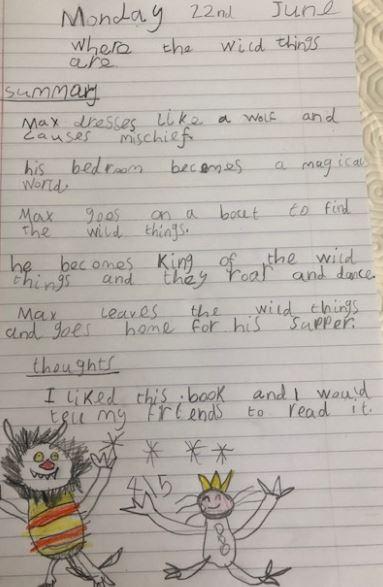 Monday 22nd June
where the wild things
are
summary
Max dresses like a wolf and
causes mischief.
his bedroom becomes a magical
world.
Max goes on a bout to find
the wild things.
he becomes King of the wild
things and they roar and dance.
Max leaves the wild things
and goes home for his supper.
thoughts
I liked this book and I would
tell my friends to read it.
4 5